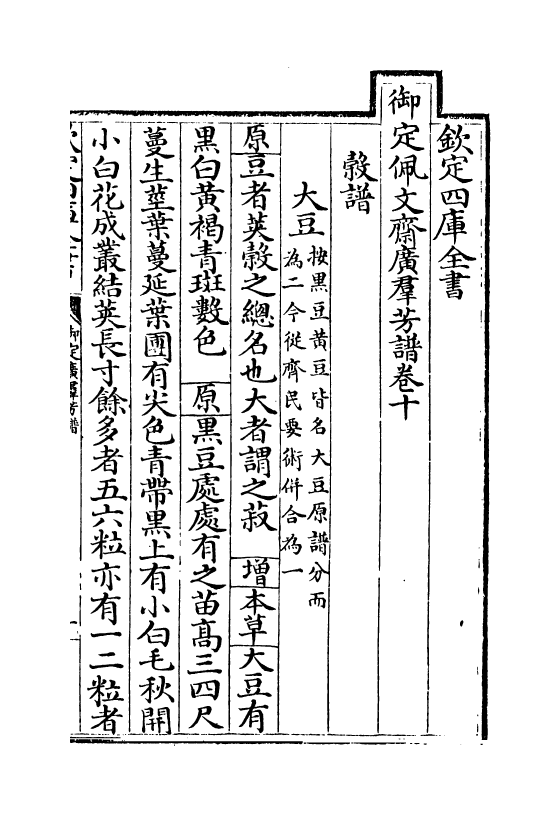 欽定四庫全書
御定佩文齋廣羣芳譜卷十
穀譜
大豆按黑豆黃豆皆名大豆原譜分而
為二今從齊民要術併合為一
原豆者莢穀之總名也大者謂之菽 增本草大豆有
黑白黃褐青斑數色 原黑豆處處有之苗高三四尺
蔓生莖葉蔓延葉團有尖色青帶黑上有小白毛秋開
小白花成叢結莢長寸餘多者五六粒亦有一二粒者
御定廣羣芳譜
一